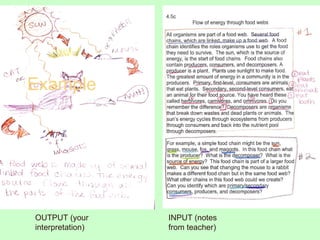 SUN
Example
A food web is made up of several
linked food chains. The energy
flows through all
the parts of the food web.
OUTPUT (your
interpretation)
4.5c
Flow of energy through food webs
All organisms are part of a food web. Several food
chains, which are linked, make up a food web. A food
chain identifies the roles organisms use to get the food
they need to survive. The sun, which is the source of
energy, is the start of food chains. Food chains also
contain producers, consumers, and decomposers. A
producer is a plant. Plants use sunlight to make food.
The greatest amount of energy in a community is in the
producers. Primary, first-level, consumers are animals
that eat plants. Secondary, second-level consumers, eat
an animal for their food source. You have heard these
called herbivores, carnivores, and omnivores. (Do you
remember the difference?) Decomposers are organisms
that break down wastes and dead plants or animals. The
sun's energy cycles through ecosystems from producers
through consumers and back into the nutrient pool
through decomposers.
For example, a simple food chain might be the sun,
grass, mouse, fox, and maggots. In this food chain what
is the producer? What is the decomposer? What is the
source of energy? This food chain is part of a larger food
web. Can you see that changing the mouse to a rabbit
makes a different food chain but in the same food web?
What other chains in this food web could we create?
Can you identify which are primary/secondary
consumers, producers, and decomposers?
#1
#2
INPUT (notes
from teacher)